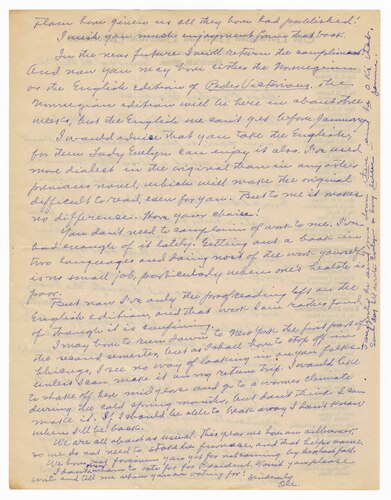 Flom has given us all they have had published!
I wish you much enjoyment from that book.
In the near future I will return the compliment.
And now you may have either the Norwegian
or the English edition of Peder Victorious. The
Norwegian edition will be here in about three
weeks, but the English one can't get before January.
I would advice that you take the English,
for then Lady Evelyn can enjoy it also. I've used
more dialect in the original than in any other
previous novel, which will make the original
difficult to read, even for you. But to me it makes
no differences. Have your choice!
You don't need to complain of work to me. I've
had enough of it lately. Getting out a book in
two languages and doing most of the work yourself
is no small job, particularly when one's health is
poor.
But now I've only the proof reading left on the
English edition, and that work I am rather fond
of though it is confining.
I may have to run down to New York the first part of
the second semester, but as I shall have to stop off in
Chicago, I see no way of looking in on you folks
unless I can make it on my return trip. I would like
to shake off here mid year and go to a warmer climate
during the cold spring months, but don't think I can
make it. If I should be able to break away I don't know
when I'll be back.
We are all about as usual. This year we have an oilburner,
so we do not need to stoke the furnace, and that helps some.
We have not forgiven you yet for not coming by here last fall.
I don't know who to vote for for President. Won't you please
write and tell me whom you are voting for? Sincerely
Ole.